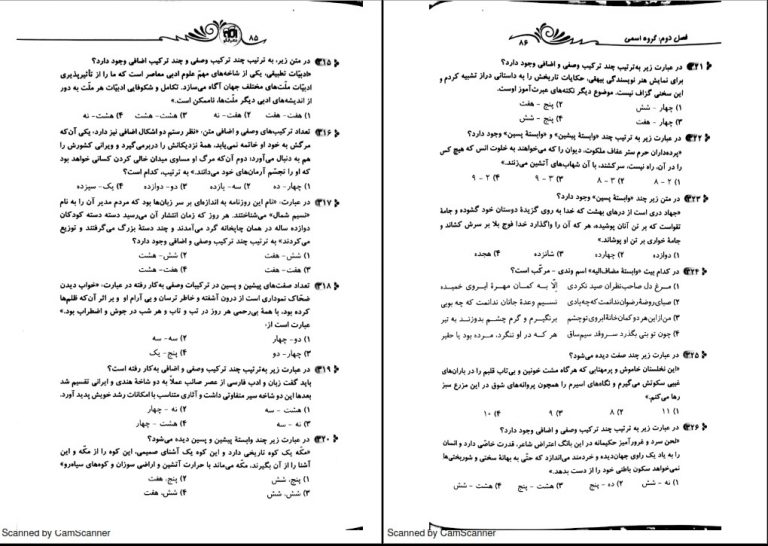 ۸۵
۳۱۵ در متن زیر، به ترتیب چند ترکیب وصفی و چند ترکیب اضافی وجود دارد؟
«ادبیّات تطبیقی، یکی از شاخه‌های مهمّ علوم ادبی معاصر است که ما را از تأثیرپذیری
ادبیّات ملّت‌های مختلف جهان آگاه می‌سازد. تکامل و شکوفایی ادبیّات هر ملّت به دور
از اندیشه‌های ادبی دیگر ملّت‌ها، ناممکن است.»
۱) هفت- هفت ۲) هفت - نه ۳) هشت- هشت ۴) هشت- نه
۳۱۶ تعداد ترکیب‌های وصفی و اضافی متن، «نظر رستم دو اشکال اضافی نیز دارد، یکی آن‌که
مرگش به خود او خاتمه نمی‌یابد. همهٔ نزدیکانش را دربرمی‌گیرد و ویرانی کشورش را
هم به دنبال می‌آورد؛ دوم آن‌که مرگ او مساوی میدان خالی کردن کسانی خواهد بود
که او را تجسّم آرمان‌های خود می‌دانند.» به ترتیب، کدام است؟
۱) چهار- ده ۲) سه- یازده ۳) دو- دوازده ۴) یک- سیزده
۳۱۷ در عبارت، «نام این روزنامه به اندازه‌ای بر سر زبان‌ها بود که مردم مدیر آن را به نام
«نسیم شمال» می‌شناختند. هر روز که زمان انتشار آن می‌رسید دسته دسته کودکان
دوازده ساله در همان چاپخانه گرد می‌آمدند و چند دستهٔ بزرگ می‌گرفتند و توزیع
می‌کردند» به ترتیب چند ترکیب وصفی و اضافی وجود دارد؟
۱) شش- هفت ۲) شش- هشت
۳) هفت- هفت ۴) هفت- هشت
۳۱۸ تعداد صفت‌های پیشین و پسین در ترکیبات وصفی به‌کار رفته در عبارت، «خواب دیدن
ضحّاک نموداری است از درون آشفته و خاطر ترسان و بی آرام او و بر اثر آن‌که قلم‌ها
کرده بود، با همهٔ بی‌رحمی هر روز در تب و تاب و هر شب در جوش و اضطراب بود.»
عبارت است از:
۱) دو- چهار ۲) سه- سه
۳) چهار- دو ۴) پنج- یک
۳۱۹ در عبارت زیر به‌ترتیب چند ترکیب وصفی و اضافی به‌کار رفته است؟
باید گفت زبان و ادب فارسی از عصر صائب عملاً به دو شاخهٔ هندی و ایرانی تقسیم شد
بعدها این دو شاخه سیر متفاوتی داشت و آثاری متناسب با امکانات رشد خویش پدید آورد.
۱) هشت - سه ۲) نه - چهار
۳) نه - سه ۴) هشت - چهار
۳۲۰ در عبارت زیر چند وابستهٔ پیشین و پسین دیده می‌شود؟
«مکّه یک کوه تاریخی دارد و این کوه یک آشنای صمیمی، این کوه را از مکّه و این
آشنا را از آن بگیرند. مکّه می‌ماند با حرارت آتشین و اراضی سوزان و کوه‌های سیاه‌رو»
۱) پنج، شش ۲) پنج، هفت
۳) شش، شش ۴) شش، هفت
Scanned by CamScanner
فصل دوم: گروه اسمی ۸۶
۳۲۱ در عبارت زیر به‌ترتیب چند ترکیب وصفی و اضافی وجود دارد؟
برای نمایش هنر نویسندگی بیهقی، حکایات تاریخش را به داستانی دراز تشبیه کردم و
این سخنی گزاف نیست. موضوع دیگر نکته‌های عبرت‌آموز اوست.
۱) چهار - شش ۲) پنج - هفت
۳) چهار - هفت ۴) پنج - شش
۳۲۲ در عبارت زیر به ترتیب چند «وابستهٔ پیشین» و «وابستهٔ پسین» وجود دارد؟
«پرده‌داران حرم ستر عفاف ملکوت، دیوان را که می‌خواهند به خلوت انس که هیچ کس
را در آن، راه نیست، سرکشند، با آن شهاب‌های آتشین می‌زنند.»
۱) ۲ - ۸ ۲) ۳ - ۸ ۳) ۳ - ۹ ۴) ۲ - ۹
۳۲۳ در متن زیر چند «وابستهٔ پسین» وجود دارد؟
«جهاد دری است از درهای بهشت که خدا به روی گزیدهٔ دوستان خود گشوده و جامهٔ
تقواست که بر تن آنان پوشیده، هر که آن را واگذارد خدا فوج بلا بر سرش کشاند و
جامهٔ خواری بر تن او پوشاند.»
۱) دوازده ۲) چهارده ۳) شانزده ۴) هجده
۳۲۴ در کدام بیت «وابستهٔ مضاف‌الیه» اسم وندی - مرکّب است؟
۱) مرغ دل صاحب‌نظران صید نکردی الّا به کمان مهرهٔ ابروی خمیده
۲) صبای روضهٔ رضوان ندانمت که چه بادی نسیم وعدهٔ جانان ندانمت که چه بویی
۳) من از این هر دو کمان‌خانهٔ ابروی تو چشم برنگیرم و گرم چشم بدوزند به تیر
۴) چون تو بتی بگذرد سروقد سیم‌ساق هر که در او ننگرد، مرده بود یا حقیر
۳۲۵ در عبارت زیر چند صفت دیده می‌شود؟
«این نخلستان خاموش و پرمهتابی که هرگاه مشت خونین و بی‌تاب قلبم را در باران‌های
غیبی سکوتش می‌گیرم و نگاه‌های اسیرم را همچون پروانه‌های شوق در این مزرع سبز
رها می‌کنم.»
۱) ۱۱ ۲) ۸ ۳) ۹ ۴) ۱۰
۳۲۶ در عبارت زیر به ترتیب چند ترکیب وصفی و اضافی وجود دارد؟
«لحن سرد و غرورآمیز حکیمانه در این بانگ اعتراض شاعر، قدرت خاصّی دارد و انسان
را به یاد یک راوی جهان‌دیده و خردمند می‌اندازد که حتّی به بهانهٔ سختی و شوربختی‌ها
نمی‌خواهد سکون باطنی خود را از دست بدهد.»
۱) نه - شش ۲) ده - پنج ۳) هشت - پنج ۴) هشت - شش
Scanned by CamScanner